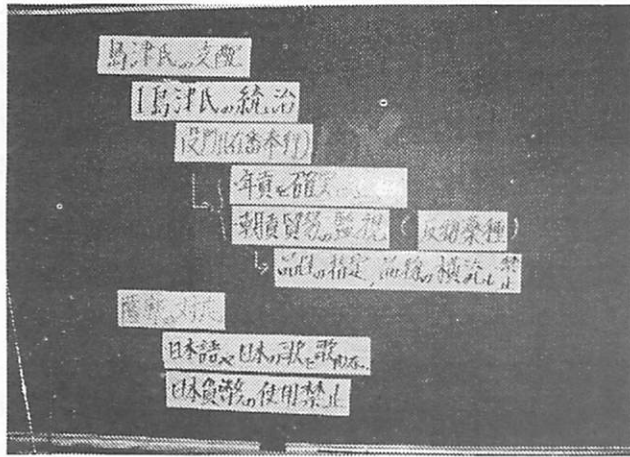 島津氏の支配
1島津氏の統治
(在番奉行)
年貢を確実
朝貢貿易の監視 (反物薬種)
品目の指定、品物の横流し禁
日本語や日本の歌を歌
日本貨幣の使用禁止